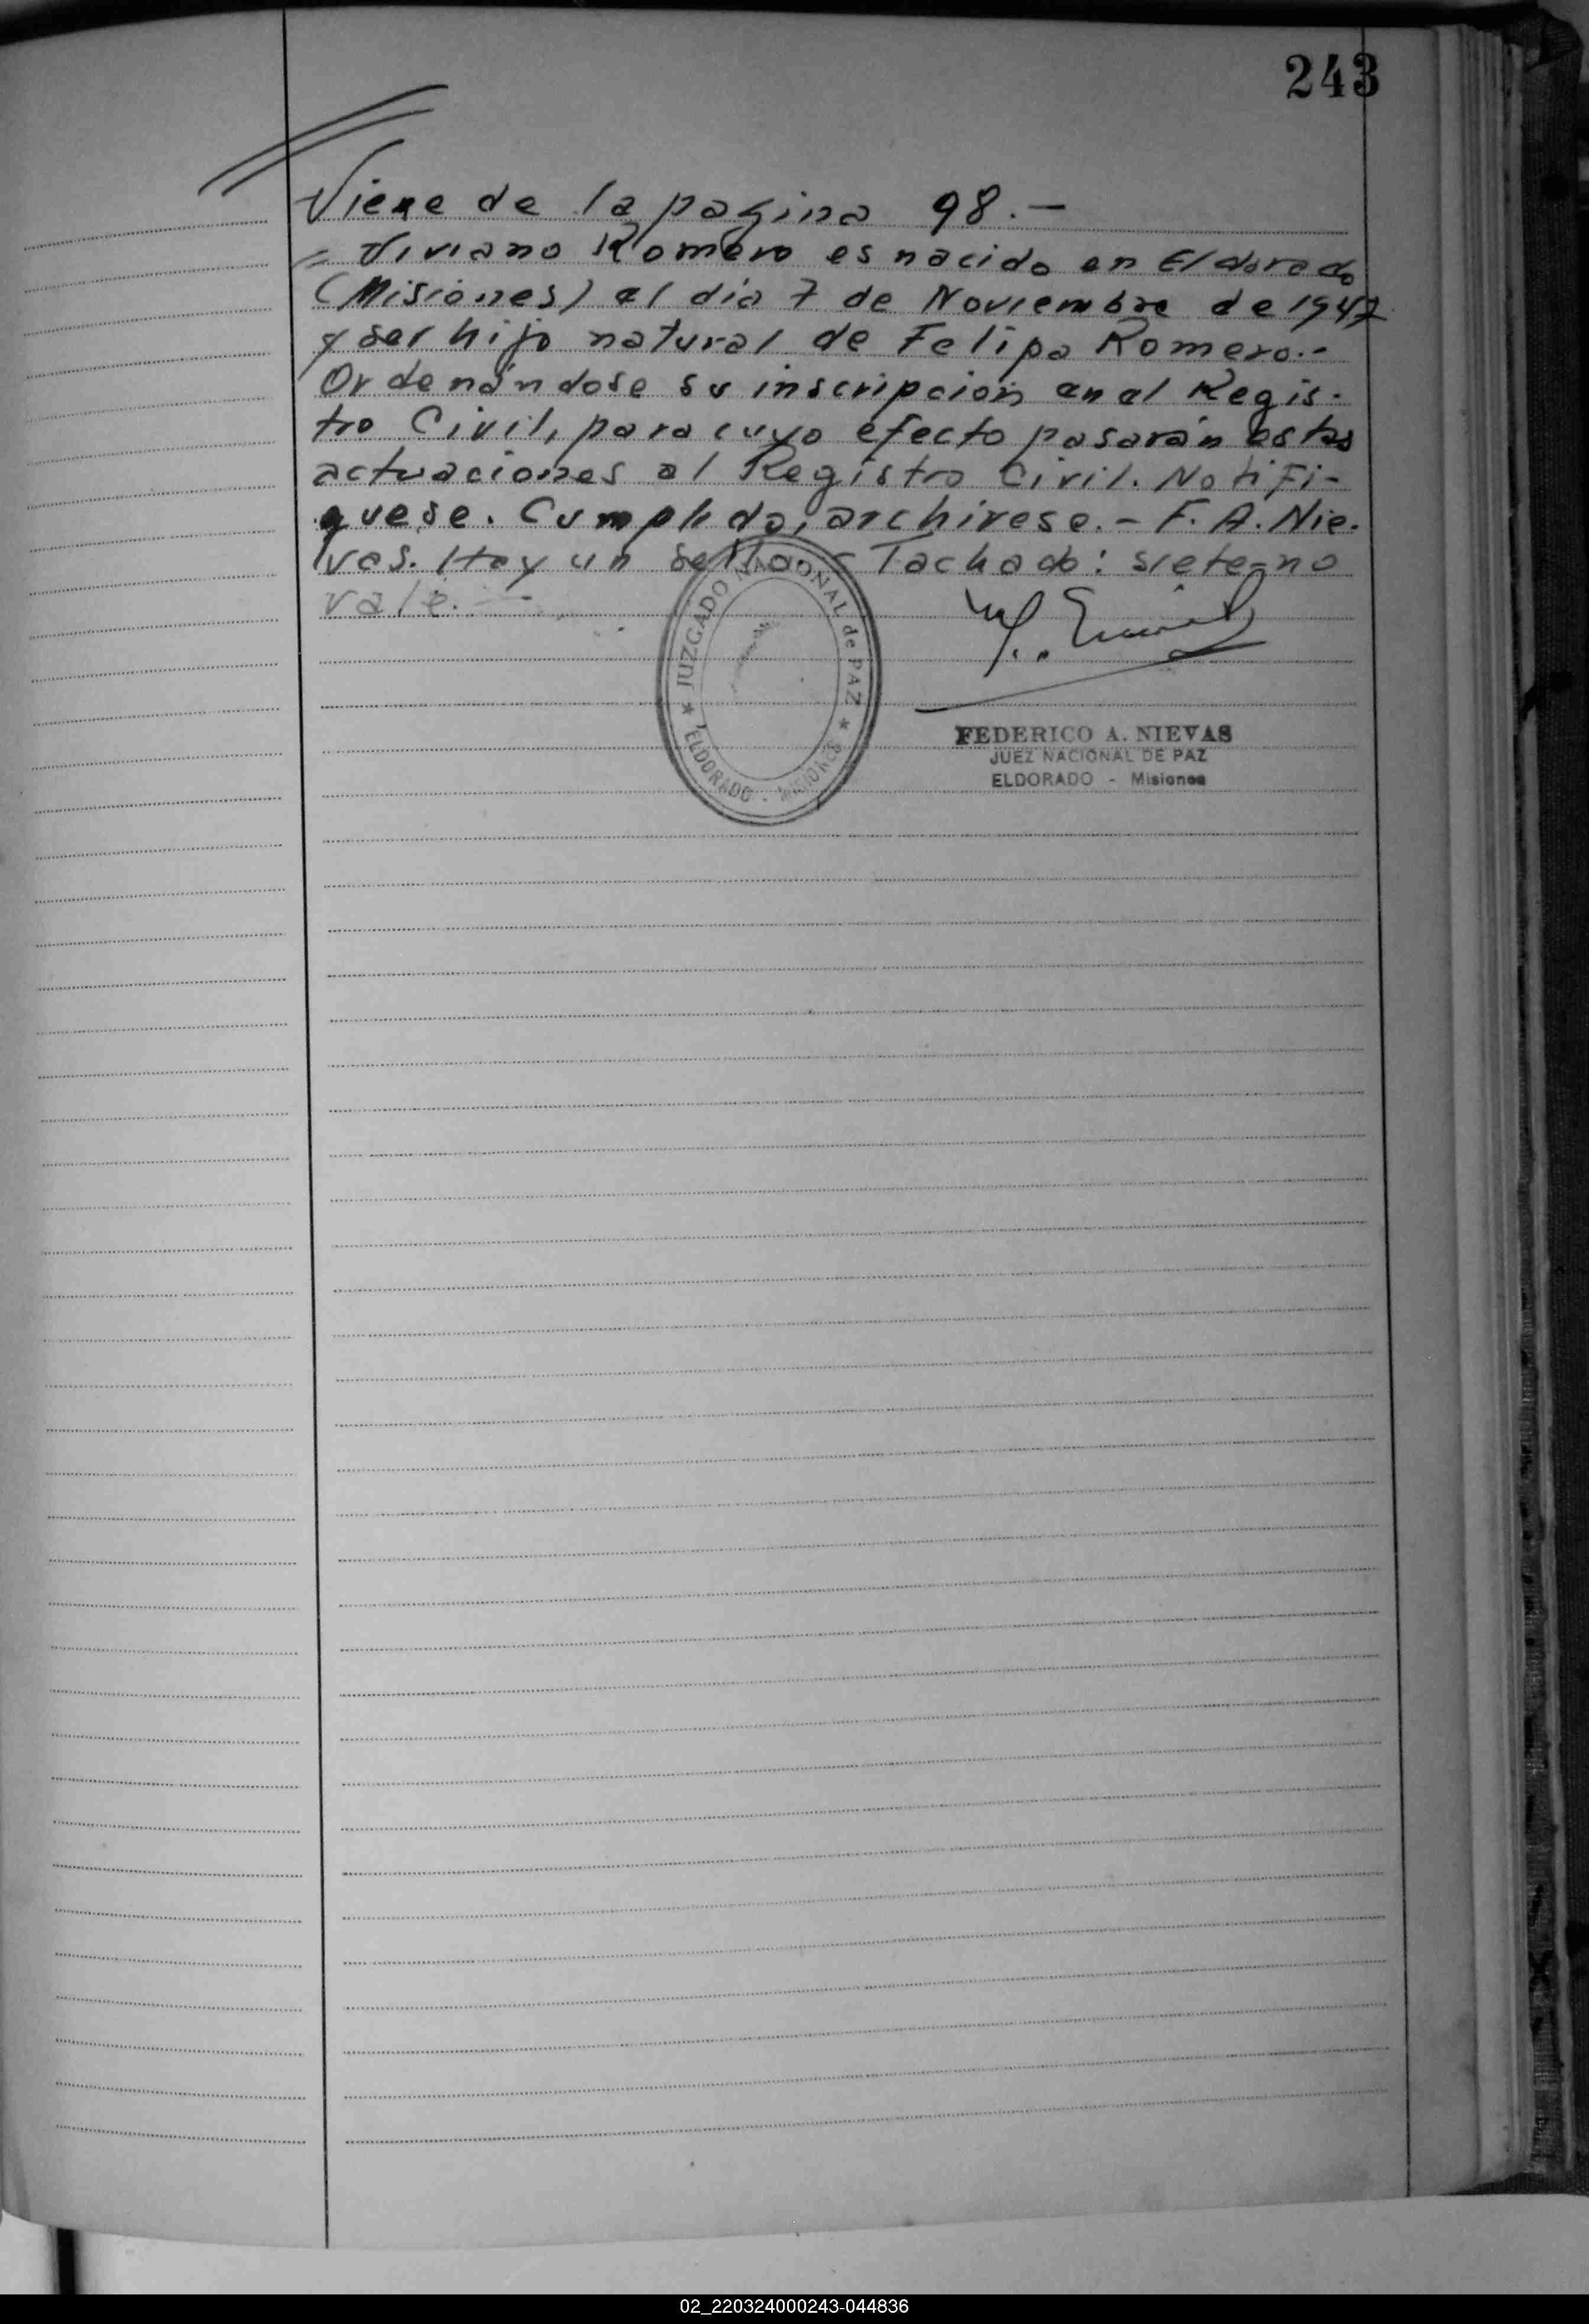 243
Viene de la pagina 98.-
= Viviano Romero es nacido en Eldorado
(Misiones) el dia 7 de Noviembre de 1947
y ser hijo natural de Felipa Romero.-
Ordenándose su inscripción en el Regis-
tro Civil, para cuyo efecto pasarán estas
actuaciones al Registro Civil. Notifi-
quese. Cumplido, archivese.- F. A. Nie-
vas. Hay un sello.- Tachado: siete=no
vale.-
JUZGADO NACIONAL de PAZ
★ ELDORADO - MISIONES ★
FEDERICO A. NIEVAS
JUEZ NACIONAL DE PAZ
ELDORADO - Misiones
02_220324000243-044836